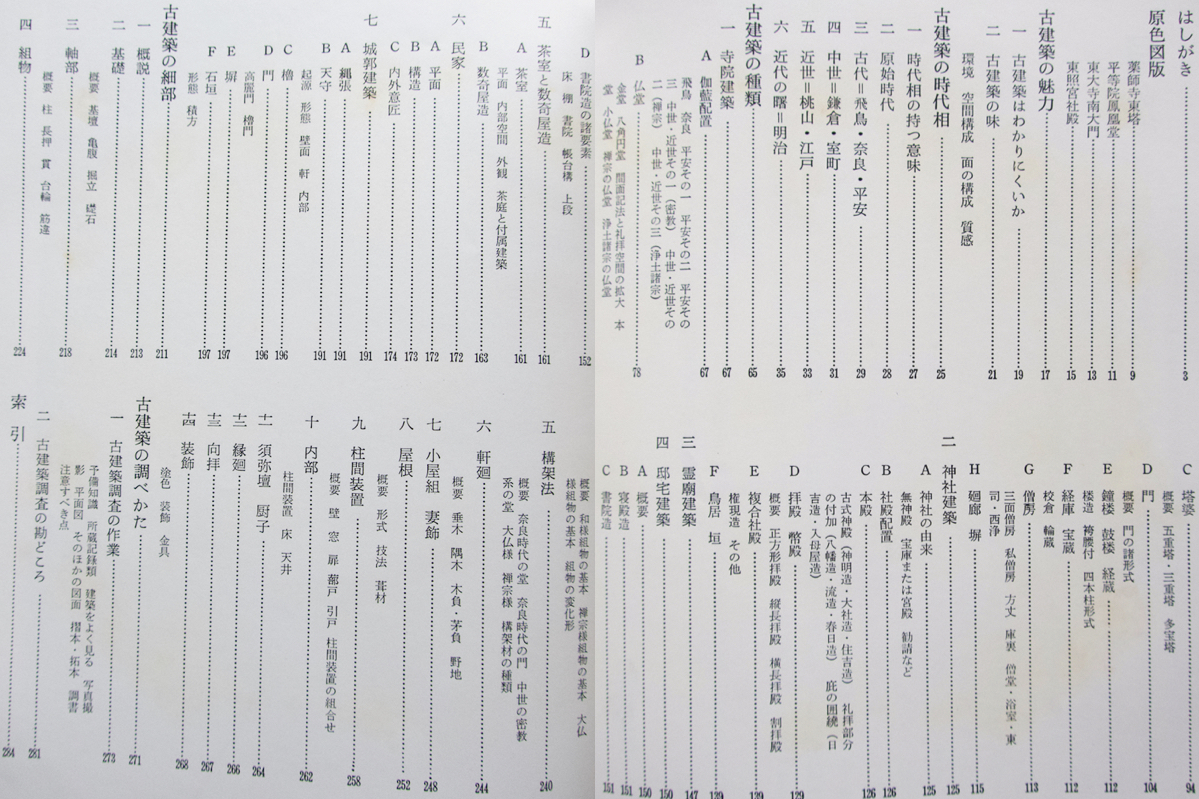 はしがき……3
原色図版
薬師寺東塔……9
平等院鳳凰堂……11
東大寺南大門……13
東照宮社殿……15
古建築の魅力……17
一 古建築はわかりにくいか……19
二 古建築の味……21
環境 空間構成 面の構成 質感
古建築の時代相……25
一 時代相の持つ意味……27
二 原始時代……28
三 古代＝飛鳥・奈良・平安……29
四 中世＝鎌倉・室町……31
五 近世＝桃山・江戸……33
六 近代の曙＝明治……35
古建築の種類……65
一 寺院建築……67
A 伽藍配置……67
飛鳥 奈良 平安その一 平安その二 平安その
三 中世・近世その一（密教） 中世・近世その
二（禅宗） 中世・近世その三（浄土諸宗）
B 仏堂……78
金堂 八角円堂 間面記法と礼拝空間の拡大 本
堂 小仏堂 禅宗の仏堂 浄土諸宗の仏堂
C 塔婆……94
概要 五重塔・三重塔 多宝塔
D 門……104
概要 門の諸形式
E 鐘楼 鼓楼 経蔵……112
楼造 袴腰付 四本柱形式
F 経庫 宝蔵……112
校倉 輪蔵
G 僧房……113
三面僧房 私僧房 方丈 庫裏 僧堂・浴室・東
司・西浄
H 廻廊 塀……115
二 神社建築……125
A 神社の由来……125
無神殿 宝庫または宮殿 勧請など
B 社殿配置……126
C 本殿……126
古式神殿（神明造・大社造・住吉造） 礼拝部分
の付加（八幡造・流造・春日造） 庇の囲繞（日
吉造・入母屋造）
D 拝殿 幣殿……129
概要 正方形拝殿 縦長拝殿 横長拝殿 割拝殿
E 複合社殿……129
権現造 その他
F 鳥居 垣……139
三 霊廟建築……147
四 邸宅建築……150
A 概要……150
B 寝殿造……151
C 書院造……151
D 書院造の諸要素……152
床 棚 書院 帳台構 上段
五 茶室と数奇屋造……161
A 茶室……161
平面 内部空間 外観 茶庭と付属建築
B 数奇屋造……163
六 民家……172
A 平面……172
B 構造……173
C 内外意匠……174
七 城郭建築……191
A 縄張……191
B 天守……191
起源 形態 壁面 軒 内部
C 櫓……196
D 門……196
高麗門 櫓門
E 塀……197
F 石垣……197
形態 積方
古建築の細部……211
一 概説……213
二 基礎……214
概要 基壇 亀腹 掘立 礎石
三 軸部……218
概要 柱 長押 貫 台輪 筋違
四 組物……224
概要 和様組物の基本 禅宗様組物の基本 大仏
様組物の基本 組物の変化形
五 構架法……240
概要 奈良時代の堂 奈良時代の門 中世の密教
系の堂 大仏様 禅宗様 構架材の種類
六 軒廻……244
概要 垂木 隅木 木負・茅負 野地
七 小屋組 妻飾……248
八 屋根……252
概要 形式 技法 葺材
九 柱間装置……258
概要 壁 窓 扉 蔀戸 引戸 柱間装置の組合せ
十 内部……262
柱間装置 床 天井
十一 須弥壇 厨子……264
十二 縁廻……266
十三 向拝……267
十四 装飾……268
塗色 装飾 金具
古建築の調べかた……271
一 古建築調査の作業……273
予備知識 所蔵記録類 建築をよく見る 写真撮
影 平面図 そのほかの図面 摺本・拓本 調書
注意すべき点
二 古建築調査の勘どころ……281
索引……284